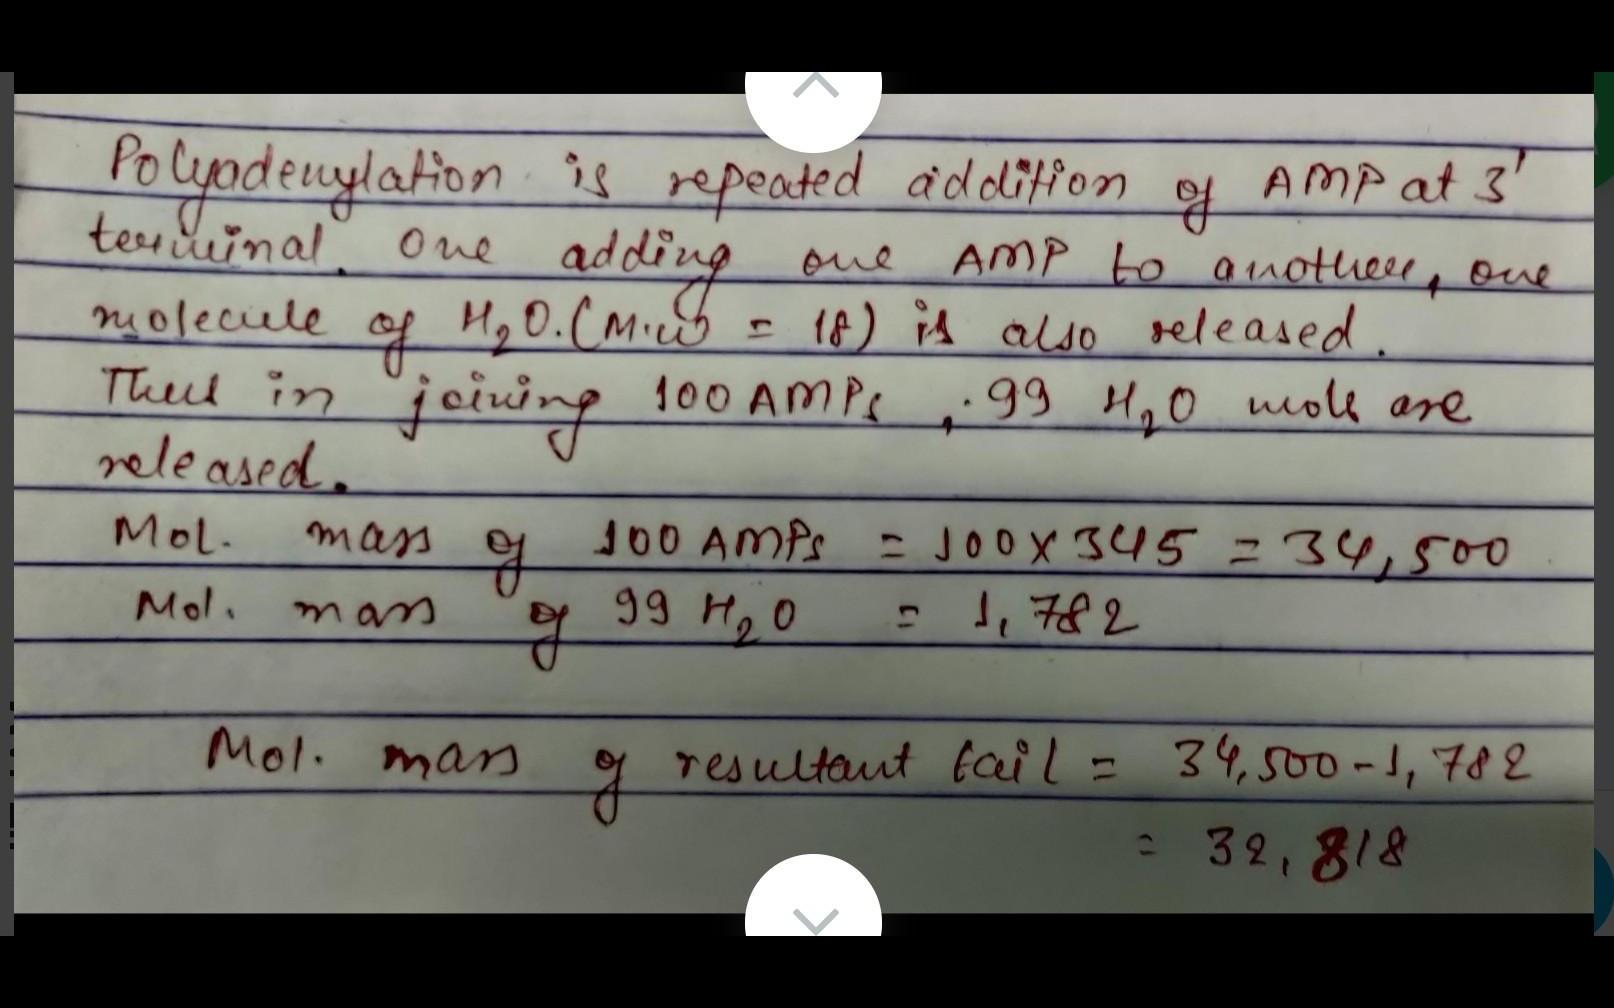 Polyadenylation is repeated addition of AMP at 3'
terminal. One adding one AMP to another, one
molecule of H₂O. (M.W = 18) is also released.
Thus in joining 100 AMPs, 99 H₂O mols are
released.
Mol. mass of 100 AMPs = 100 x 345 = 34,500
Mol. mass of 99 H₂O = 1,782
Mol. mass of resultant tail = 34,500 - 1,782
= 32,818